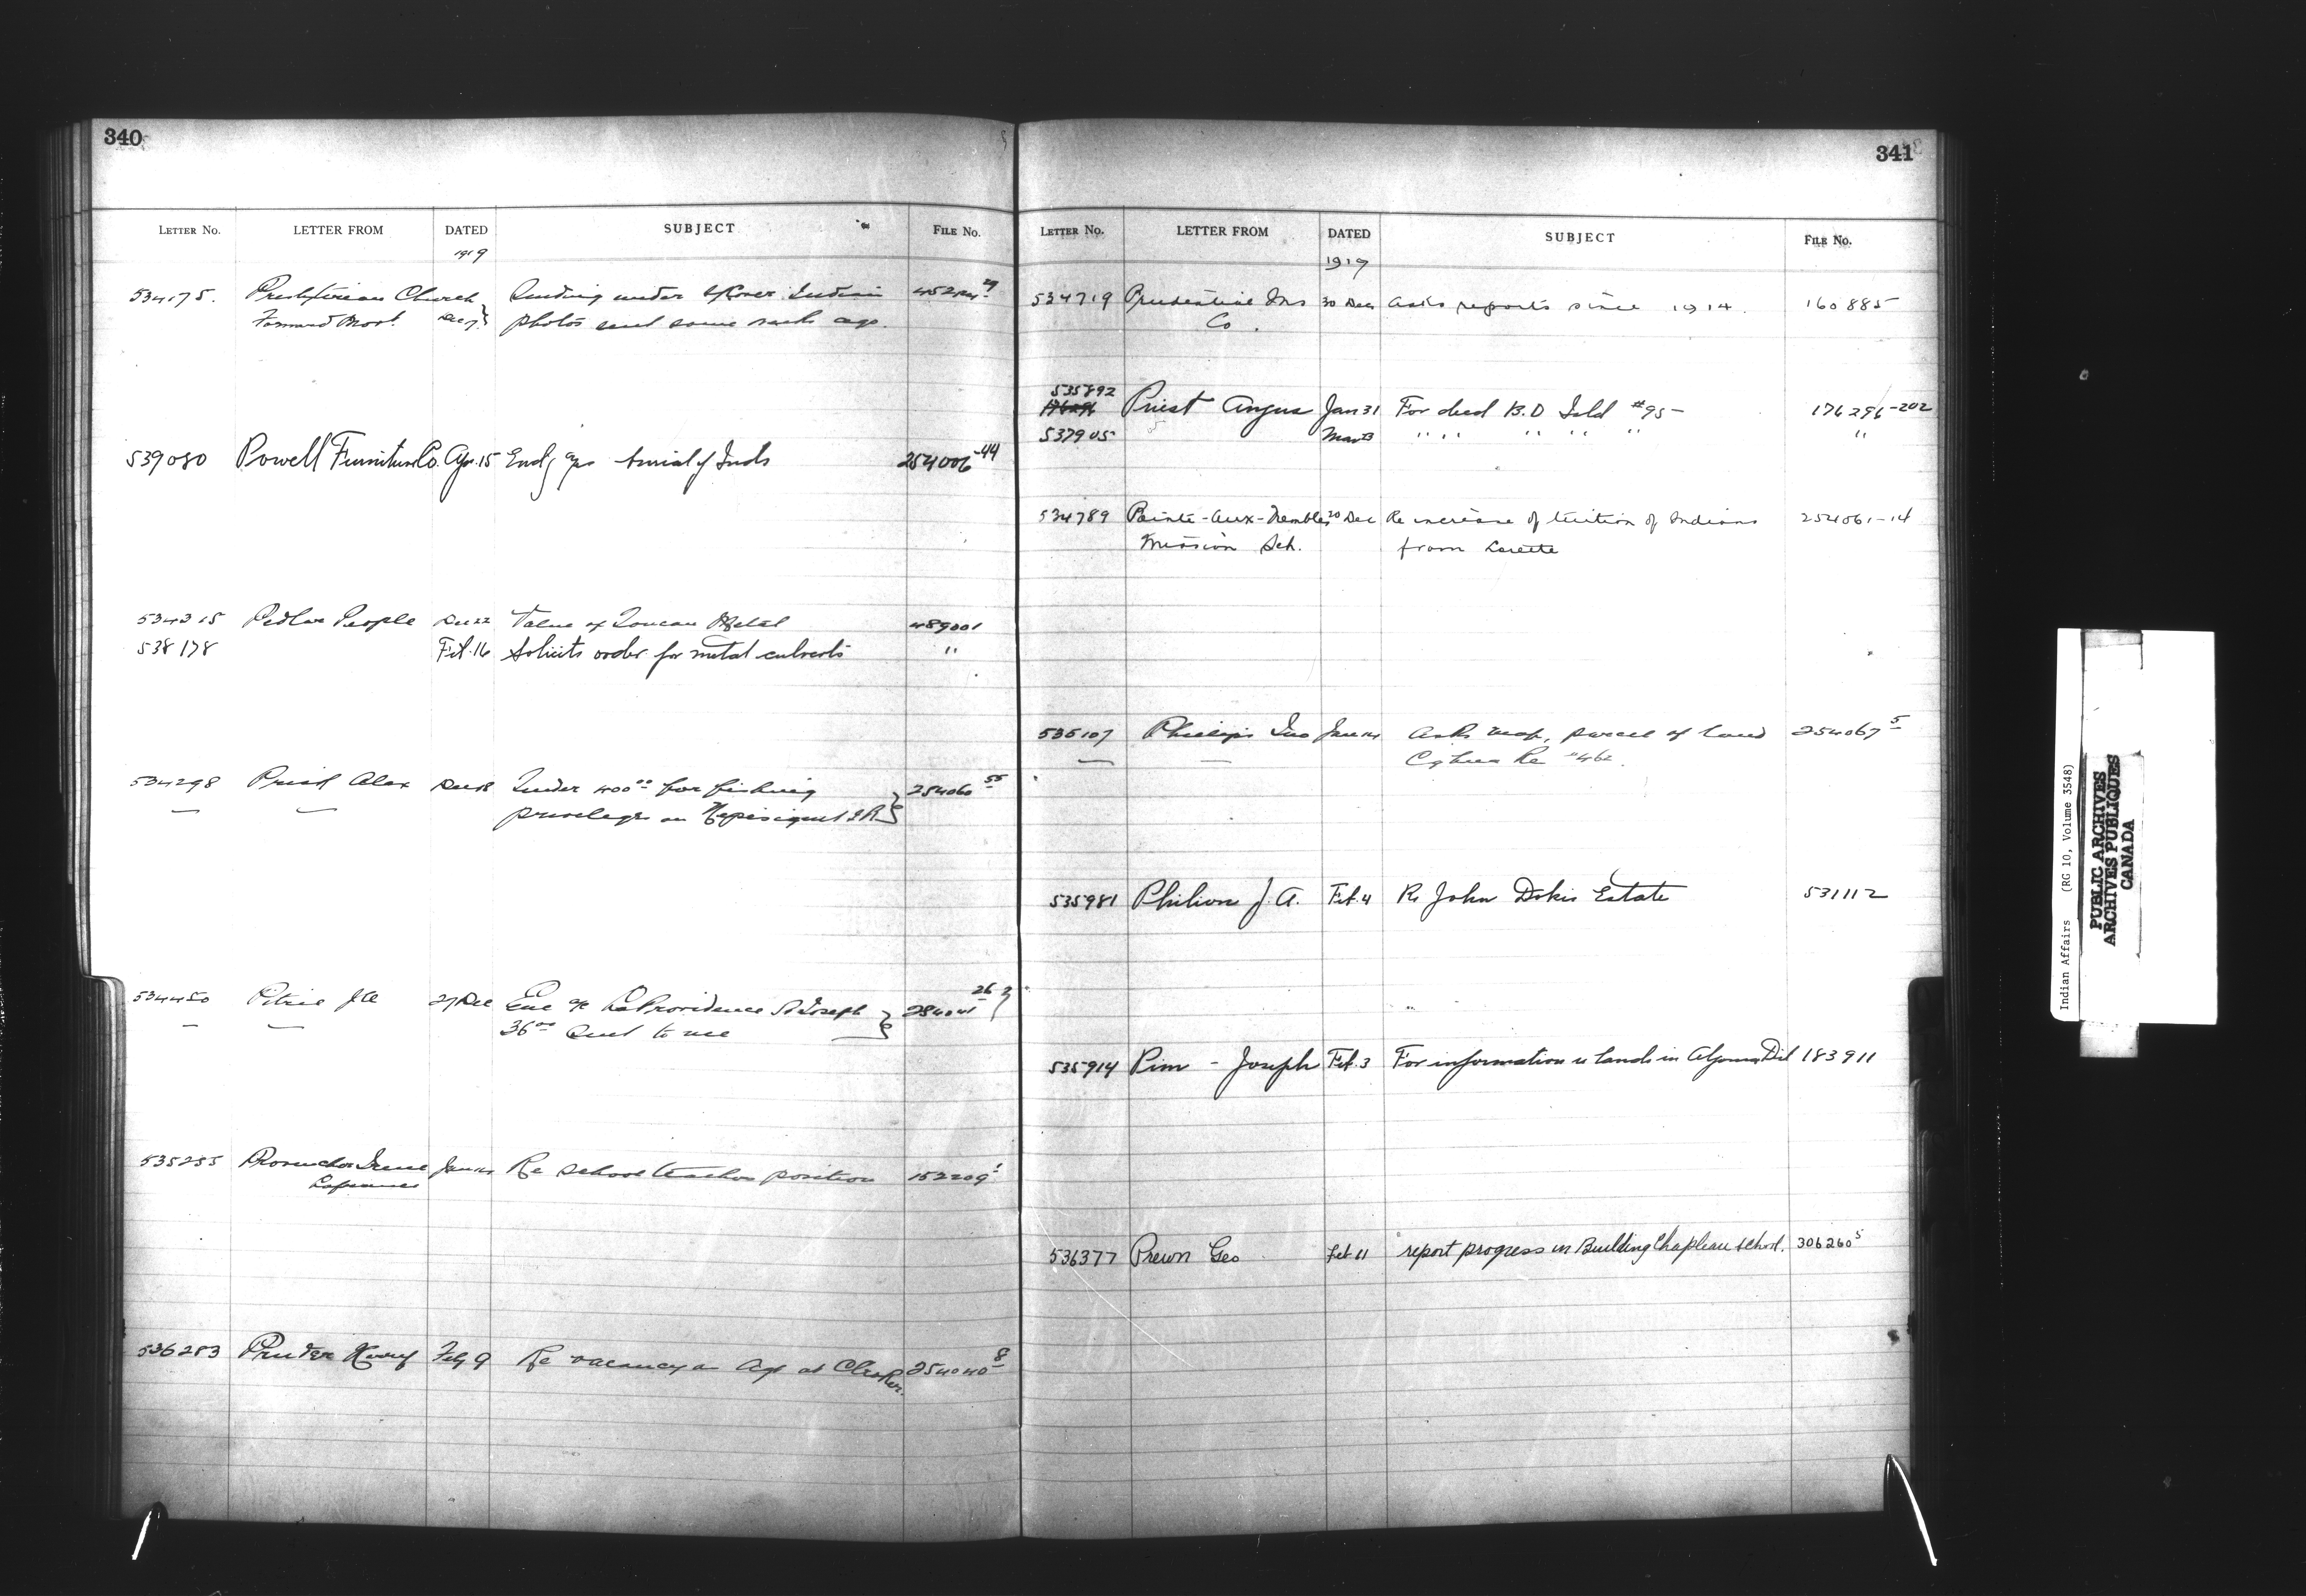 340
LETTER No. LETTER FROM DATED SUBJECT FILE No.
1919
534175. Presbyterian Church Sending under Cover Indian
Forward Movt. Dec 7 photos sent some weeks ago.
539080 Powell Furniture Co. Apr. 15 Encl ac burial of Inds 254006-44
534315 Pedlar People Dec 22 Value of Toncan Metal 489001
538178 Feb. 16 Solicits order for metal culverts "
534298 Priest Alex Dec 18 Tender 400 00 for fishing 254060 55
privileges on I R
534450 Petrie 27 Dec Enc a/c La Providence St Joseph 26 2
36 00 Sent to me
535255 Irene Jan 14 Re school teacher position 152209 1
Lafrance
536283 Feby 9 Re vacancy as Agt at 254040 8
341
LETTER No. LETTER FROM DATED SUBJECT FILE No.
1919
534719 Prudential Ins 30 Dec asks reports since 1914. 160885
Co.
535892
176296 Priest Angus Jan 31 For deed B.D Isld #95- 176296-202
537905 Mar 13 " " " " " "
534789 Pointe-aux-Trembles 20 Dec Re increase of tuition of Indians 254061-14
Mission Sch. from Lorette
535107 Phillips Jan 14 Asks map, parcel of land 254067 5
Re #462.
535981 Philion J. A. Feb. 4 Re John Dokis Estate 531112
535914 Pim - Joseph Feb. 3 For information re lands in Algoma Dist 183911
536377 Prewn Geo Feb. 11 report progress in Building Chapleau school. 306260 5
Indian Affairs (RG 10, Volume 3548)
PUBLIC ARCHIVES
ARCHIVES PUBLIQUES
CANADA